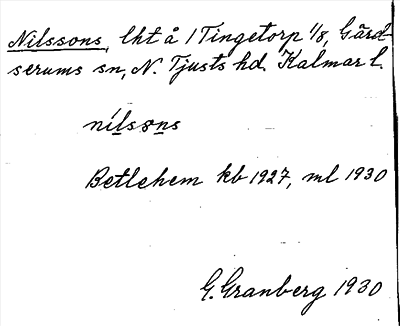 Nilssons, lht å 1 Tingetorp 1/8, Gärd-
serums sn, N. Tjusts hd. Kalmar l.
nílsǝns
Betlehem kb 1927, ml 1930
G. Granberg 1930